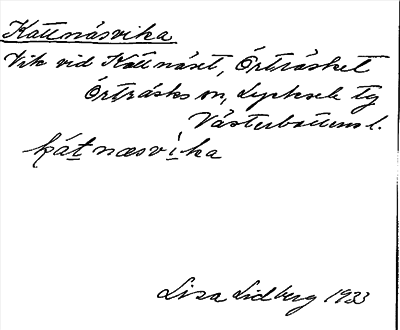 Kattnäsvika
Vik vid Kattnäset, Örträsket
Örträsks sn, Lycksele tg
Västerbottens l.
kátnæsvika
Lisa Lidberg 1933